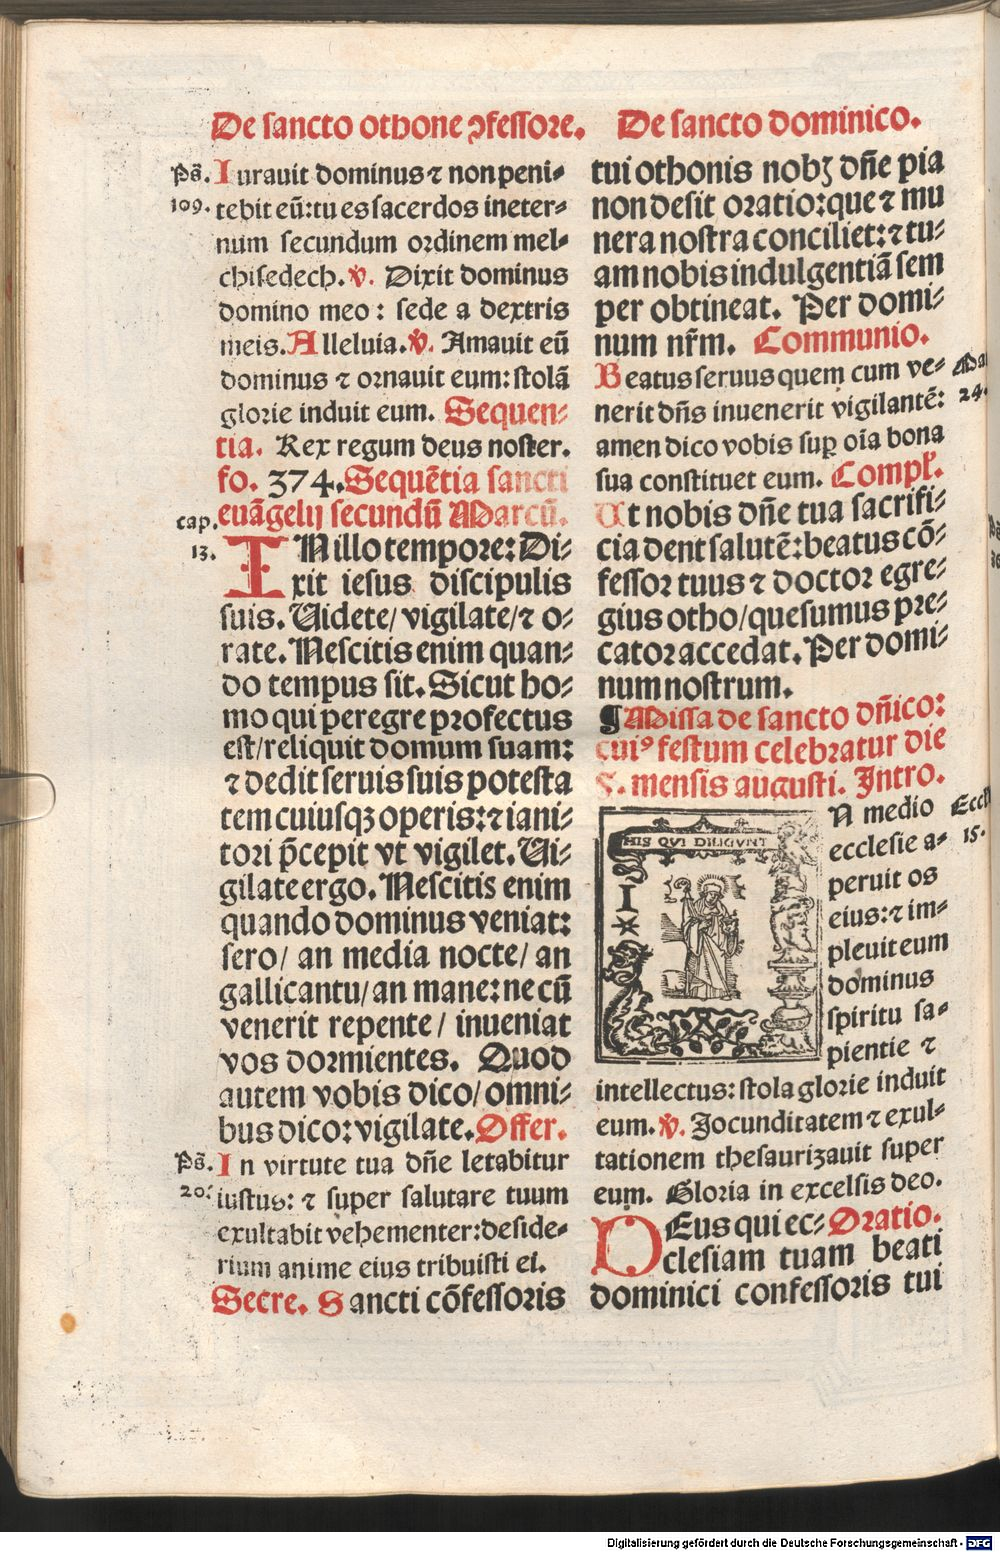 De sancto othone ꝯfessore. De sancto dominico.
Ps̄. Iurauit dominus ⁊ non peni-
109. tebit eū: tu es sacerdos in eter-
num secundum ordinem mel-
chisedech. ꝟ. Dixit dominus
domino meo: sede a dextris
meis. Alleluia. ꝟ. Amauit eū
dominus ⁊ ornauit eum: stolā
glorie induit eum. Sequen-
tia. Rex regum deus noster.
fo. 374. Sequētia sancti
cap. euāgelij secundū Marcū.
13. IN illo tempore: Di-
xit iesus discipulis
suis. Uidete/ vigilate/ ⁊ o-
rate. Nescitis enim quan-
do tempus sit. Sicut ho-
mo qui peregre profectus
est/ reliquit domum suam:
⁊ dedit seruis suis potesta
tem cuiusqꝫ operis: ⁊ iani-
tori p̄cepit vt vigilet. Ui-
gilate ergo. Nescitis enim
quando dominus veniat:
sero/ an media nocte/ an
gallicantu/ an mane: ne cū
venerit repente/ inueniat
vos dormientes. Quod
autem vobis dico/ omni-
bus dico: vigilate. Offer.
Ps̄. In virtute tua dn̄e letabitur
20. iustus: ⁊ super salutare tuum
exultabit vehementer: deside-
rium anime eius tribuisti ei.
Secre. Sancti cōfessoris
tui othonis nobꝫ dn̄e pia
non desit oratio: que ⁊ mu
nera nostra conciliet: ⁊ tu-
am nobis indulgentiā sem
per obtineat. Per domi-
num nr̄m. Communio.
Beatus seruus quem cum ve- Mat
nerit dn̄s inuenerit vigilantē: 24.
amen dico vobis suꝑ oīa bona
sua constituet eum. Compl̄.
Ut nobis dn̄e tua sacrifi-
cia dent salutē: beatus cō-
fessor tuus ⁊ doctor egre-
gius otho/ quesumus pre-
cator accedat. Per domi-
num nostrum.
¶ Missa de sancto dn̄ico:
cuiꝰ festum celebratur die
5. mensis augusti. Intro.
HIS QVI DILIGVNT
IN medio Eccli
ecclesie a- 15.
peruit os
eius: ⁊ im-
pleuit eum
dominus
spiritu sa-
pientie ⁊
intellectus: stola glorie induit
eum. ꝟ. Iocunditatem ⁊ exul-
tationem thesaurizauit super
eum. Gloria in excelsis deo.
DEus qui ec- Oratio.
clesiam tuam beati
dominici confessoris tui
Digitalisierung gefördert durch die Deutsche Forschungsgemeinschaft - DFG